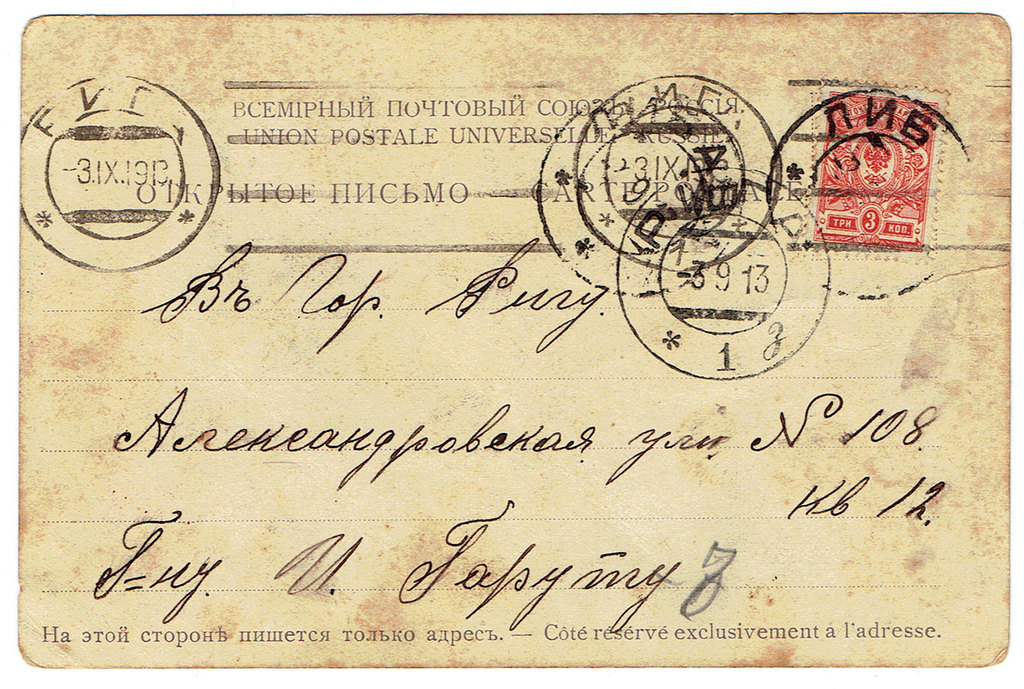 ВСЕМІРНЫЙ ПОЧТОВЫЙ СОЮЗЪ. РОССІЯ.
UNION POSTALE UNIVERSELLE. RUSSIE
ОТКРЫТОЕ ПИСЬМО — CARTE POSTALE
-3.IX.191
ЛИБ
ТРИ 3 КОП.
-3 9 13
1 з
Въ Гор. Ригу.
Александровская ули № 108.
кв 12.
Г=ну. И. Гаруту
На этой сторонѣ пишется только адресъ. — Côté réservé exclusivement à l'adresse.